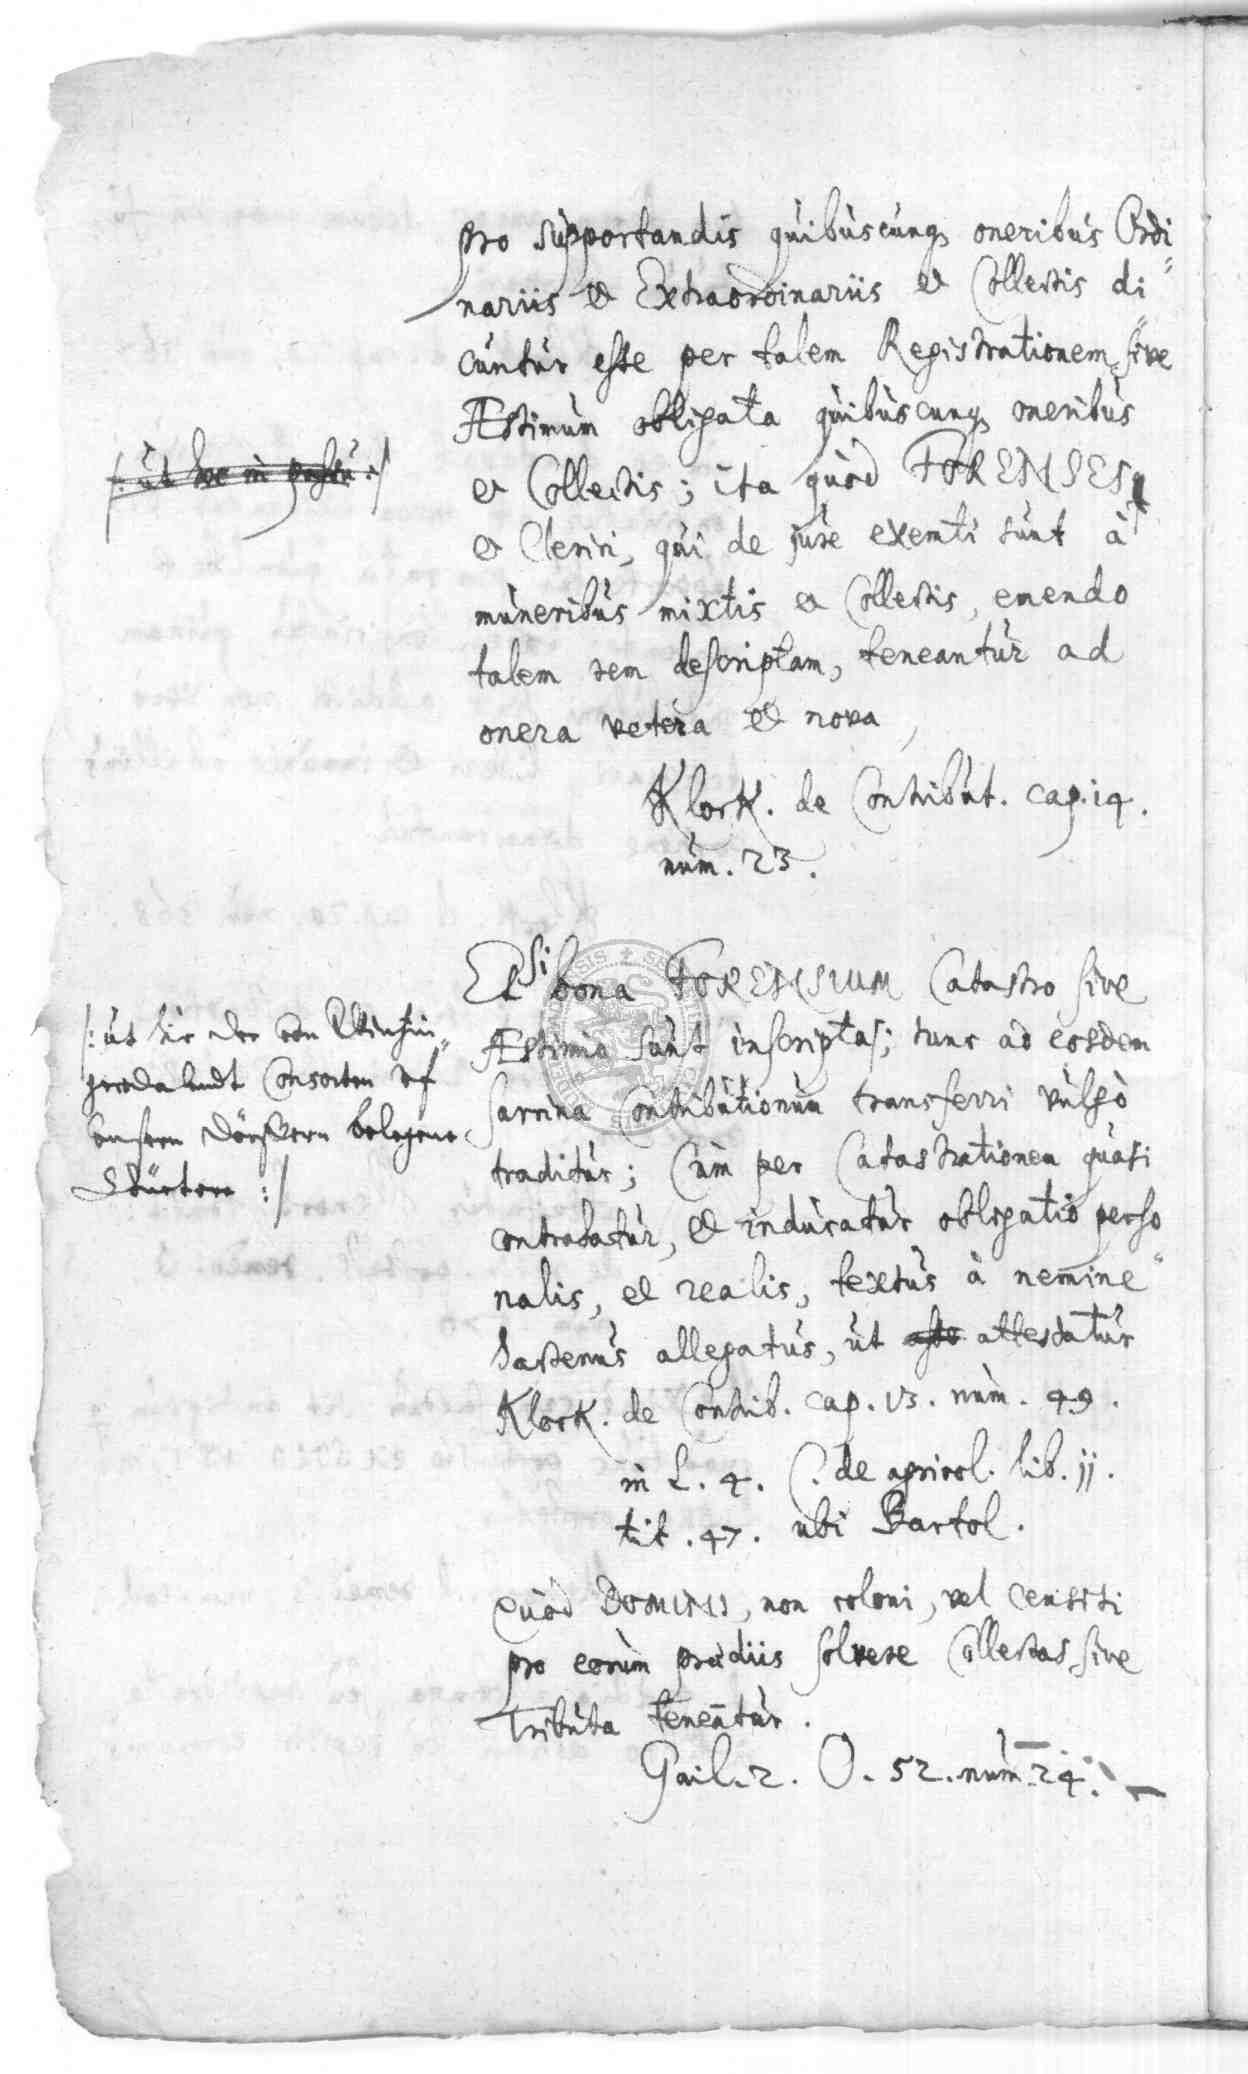 pro supportandis quibuscunq; oneribus Ordi
nariis et Extraordinariis et Collectis di
cuntur esse per talem Registrationem sive
Æstimum obligata quibuscunq; oneribus
et Collectis; ita quòd FORENSES,
et Clerici, qui de jure exemti sunt à
muneribus mixtis et Collectis, emendo
talem rem descriptam, teneantur ad
onera vetera et nova,
Klock. de Contribut. cap. 14.
num. 23.
/: ut hoc in passu :/
Et si bona FORENSIUM Catastro sive
Æstimio sunt inscripta; tunc ad eosdem
sarcina Contributionum transferri vulgò
traditur; Cùm per Catastrationem quasi
contrahatur, et inducatur obligatio perso
nalis, et realis, textus à nemine
hactenus allegatus, ut attestatur
Klock. de Contrib. cap. 13. num. 49.
in L. 4. C. de agricol. lib. 11.
tit. 47. ubi Bartol.
/: ut hie der von
Consorten uf
unsern Dörffern belegene
:/
Quod DOMINI, non coloni, vel Censiti
pro eorum prædiis solvere Collectas sive
Tributa teneantur.
Gail. 2. O. 52. num. 24.